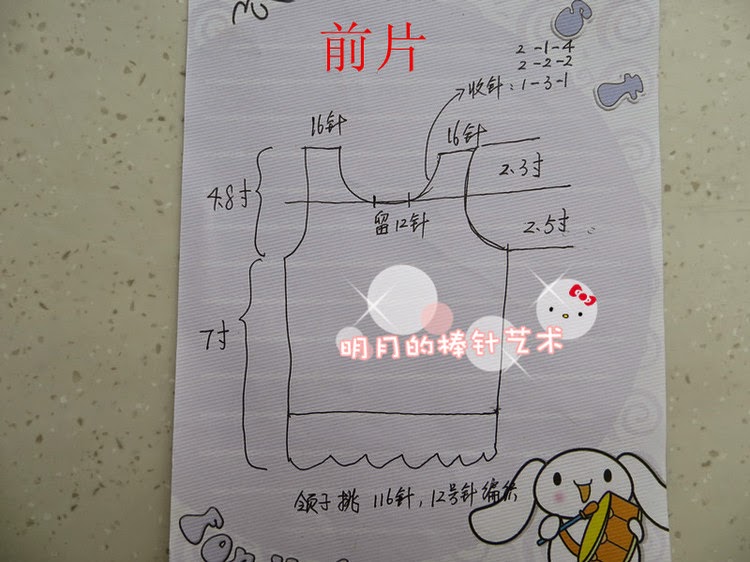 前片
2-1-4
2-2-2
收针：1-3-1
16针
16针
4.8寸
2.3寸
留12针
2.5寸
7寸
明月的棒针艺术
领子挑 116针，12号针编织